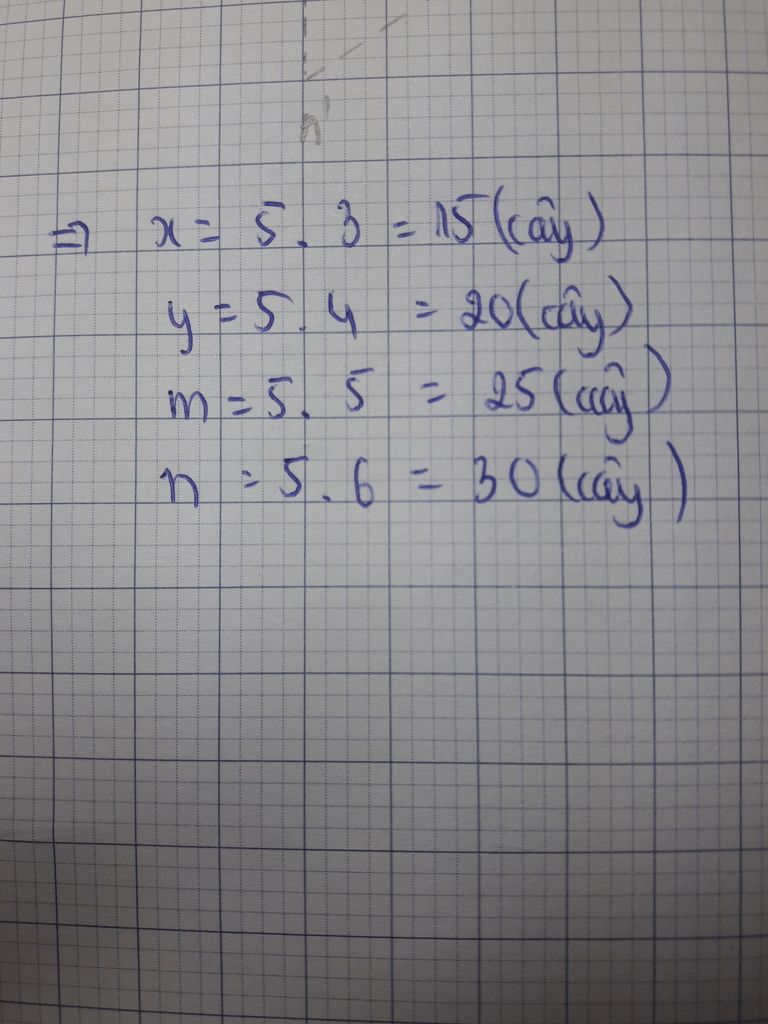 n'
⇒ x = 5 . 3 = 15 (cây)
y = 5 . 4 = 20 (cây)
m = 5 . 5 = 25 (cây)
n = 5 . 6 = 30 (cây)